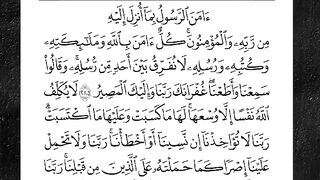 ءَامَنَ ٱلرَّسُولُ بِمَآ أُنزِلَ إِلَيْهِ
مِن رَّبِّهِۦ وَٱلْمُؤْمِنُونَ ۚ كُلٌّ ءَامَنَ بِٱللَّهِ وَمَلَـٰٓئِكَتِهِۦ
وَكُتُبِهِۦ وَرُسُلِهِۦ لَا نُفَرِّقُ بَيْنَ أَحَدٍ مِّن رُّسُلِهِۦ ۚ وَقَالُوا۟
سَمِعْنَا وَأَطَعْنَا ۖ غُفْرَانَكَ رَبَّنَا وَإِلَيْكَ ٱلْمَصِيرُ ٢٨٥ لَا يُكَلِّفُ
ٱللَّهُ نَفْسًا إِلَّا وُسْعَهَا ۚ لَهَا مَا كَسَبَتْ وَعَلَيْهَا مَا ٱكْتَسَبَتْ ۗ
رَبَّنَا لَا تُؤَاخِذْنَآ إِن نَّسِينَآ أَوْ أَخْطَأْنَا ۚ رَبَّنَا وَلَا تَحْمِلْ
عَلَيْنَآ إِصْرًا كَمَا حَمَلْتَهُۥ عَلَى ٱلَّذِينَ مِن قَبْلِنَا ۚ رَبَّنَا